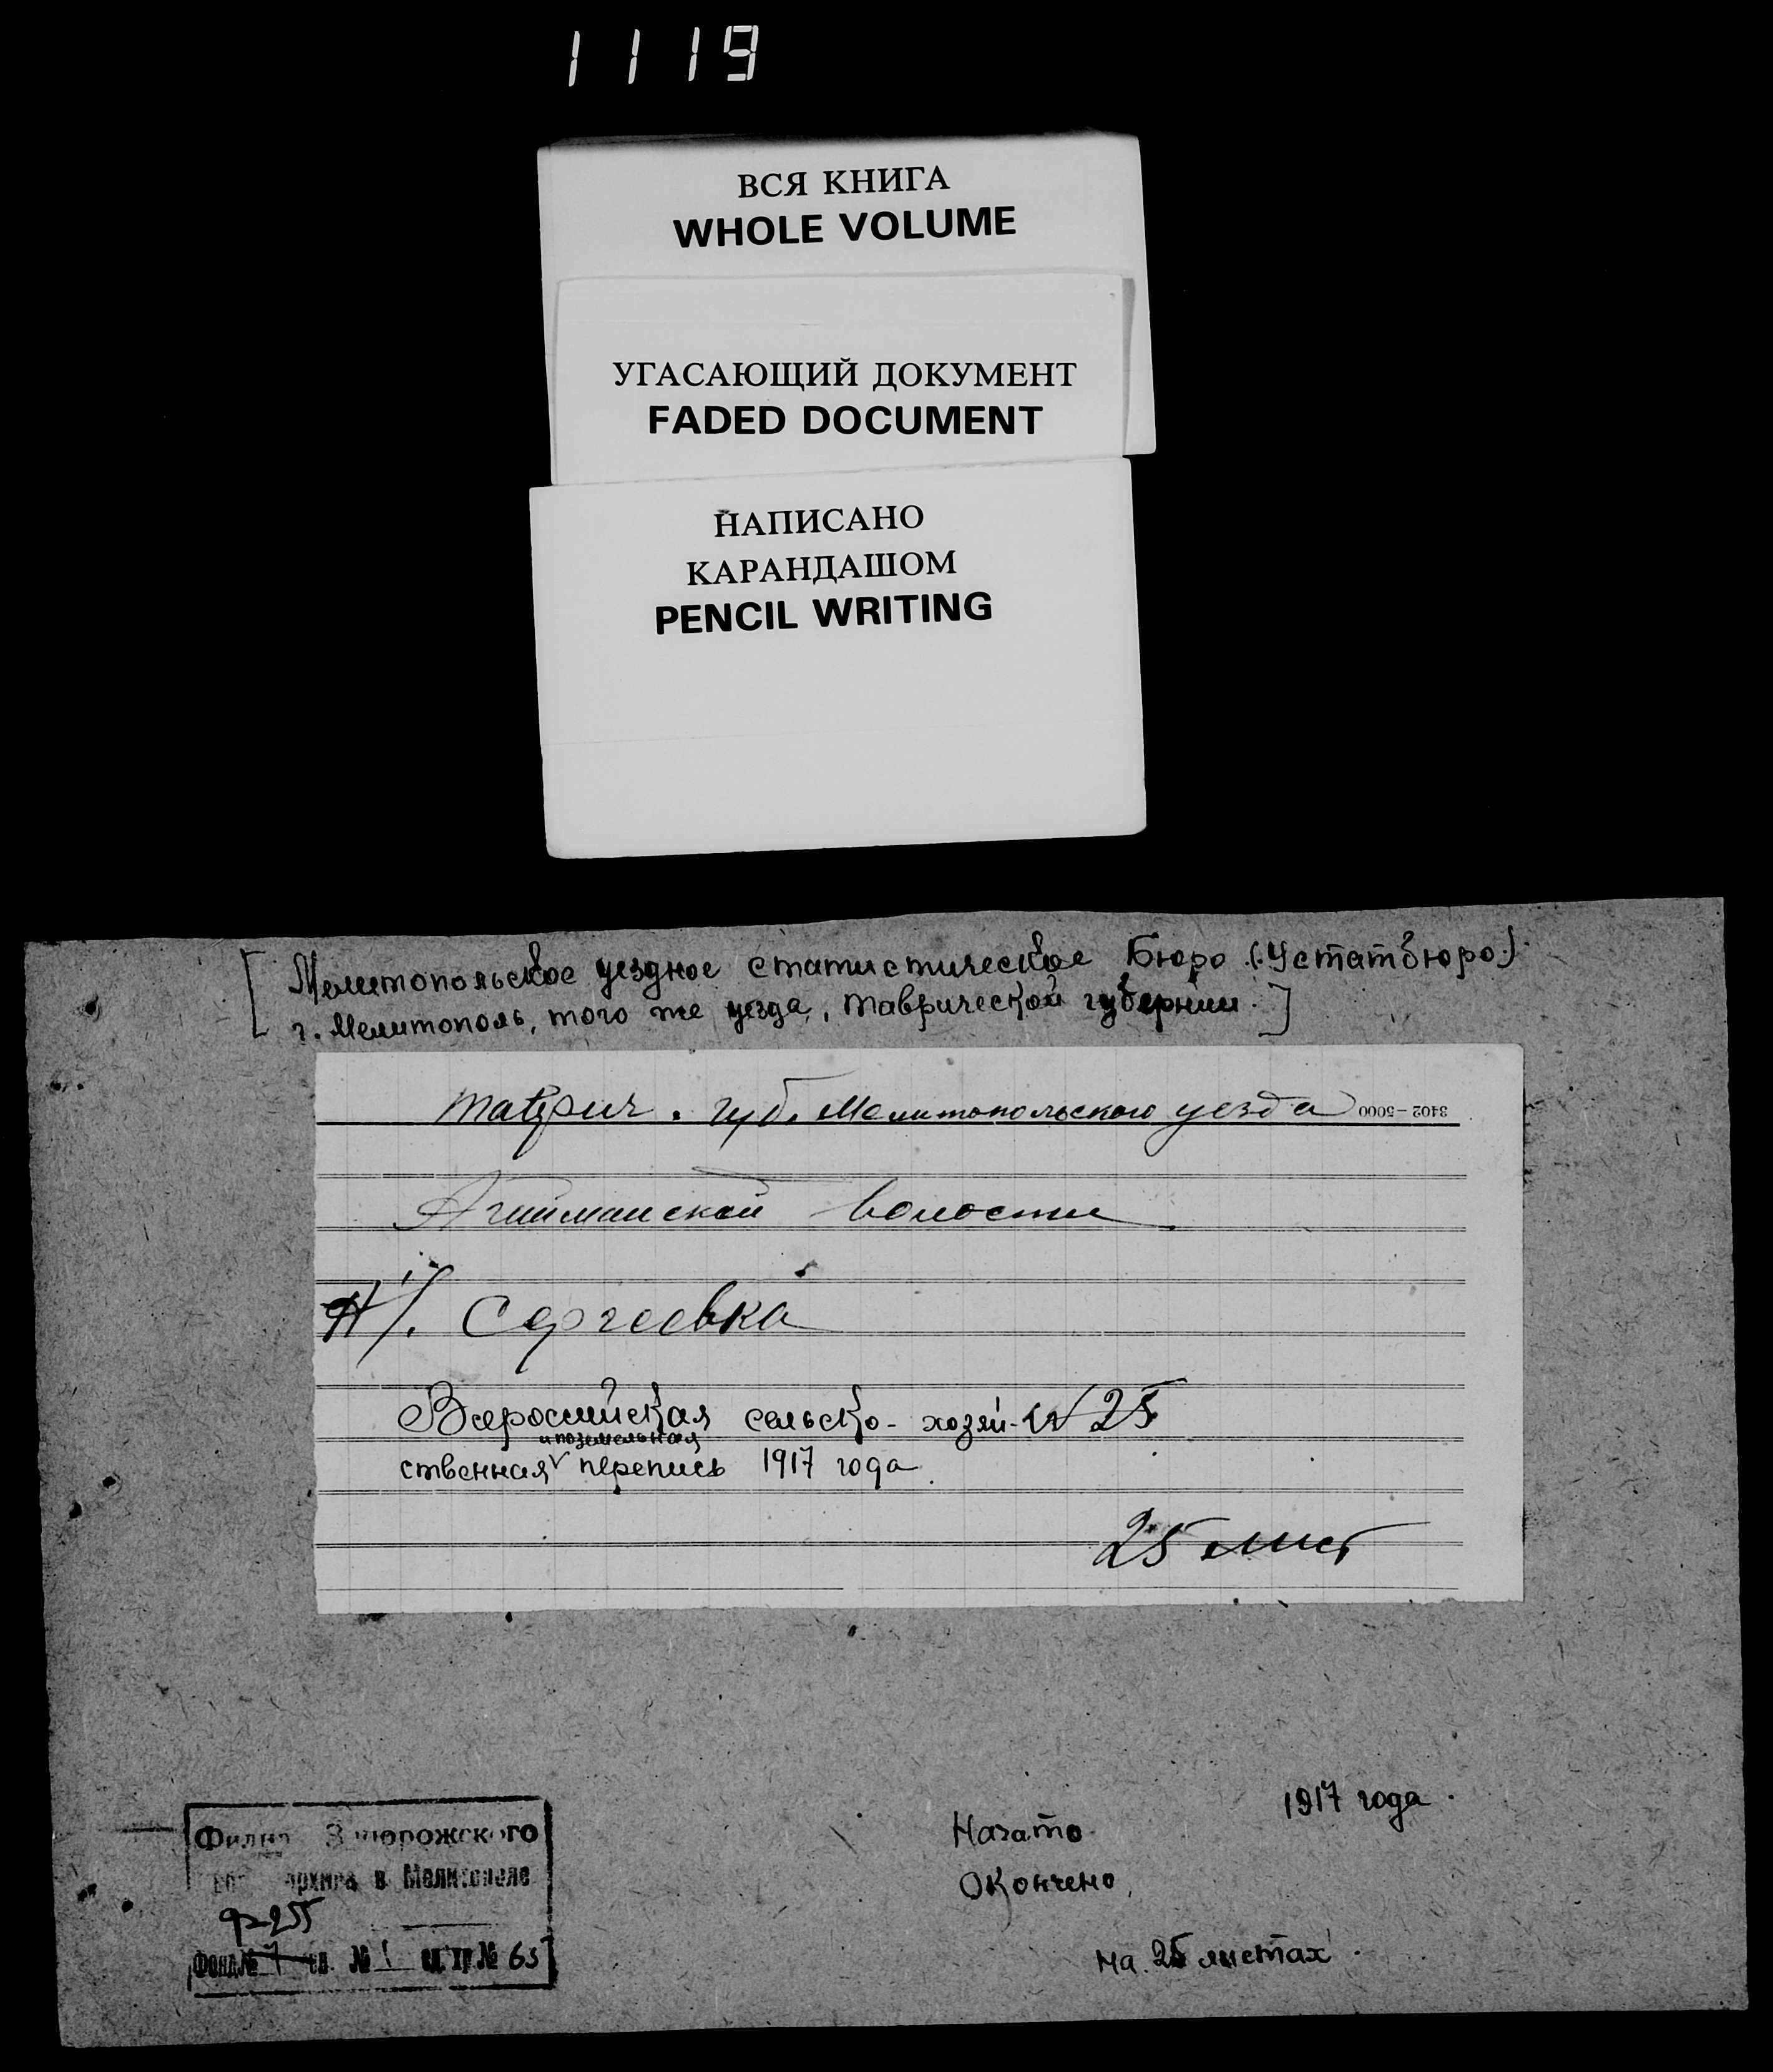 1119
ВСЯ КНИГА
WHOLE VOLUME
УГАСАЮЩИЙ ДОКУМЕНТ
FADED DOCUMENT
НАПИСАНО
КАРАНДАШОМ
PENCIL WRITING
[Мелитопольское уездное статистическое Бюро (Устатбюро)
г. Мелитополь, того же уезда, Таврической губернии.]
Таврич. губ. Мелитопольского уезда 3402-5000
Агайманской волости
Сергеевка
Всероссийская сельско-хозяй- № 25
и поземельная
ственная V перепись 1917 года.
25 лист
1917 года.
Начато
Окончено
на 25 листах.
Филиа Запорожского
архива в Мелитополе
Р-255
Фонд № 7 № 1 ед. хр. № 65